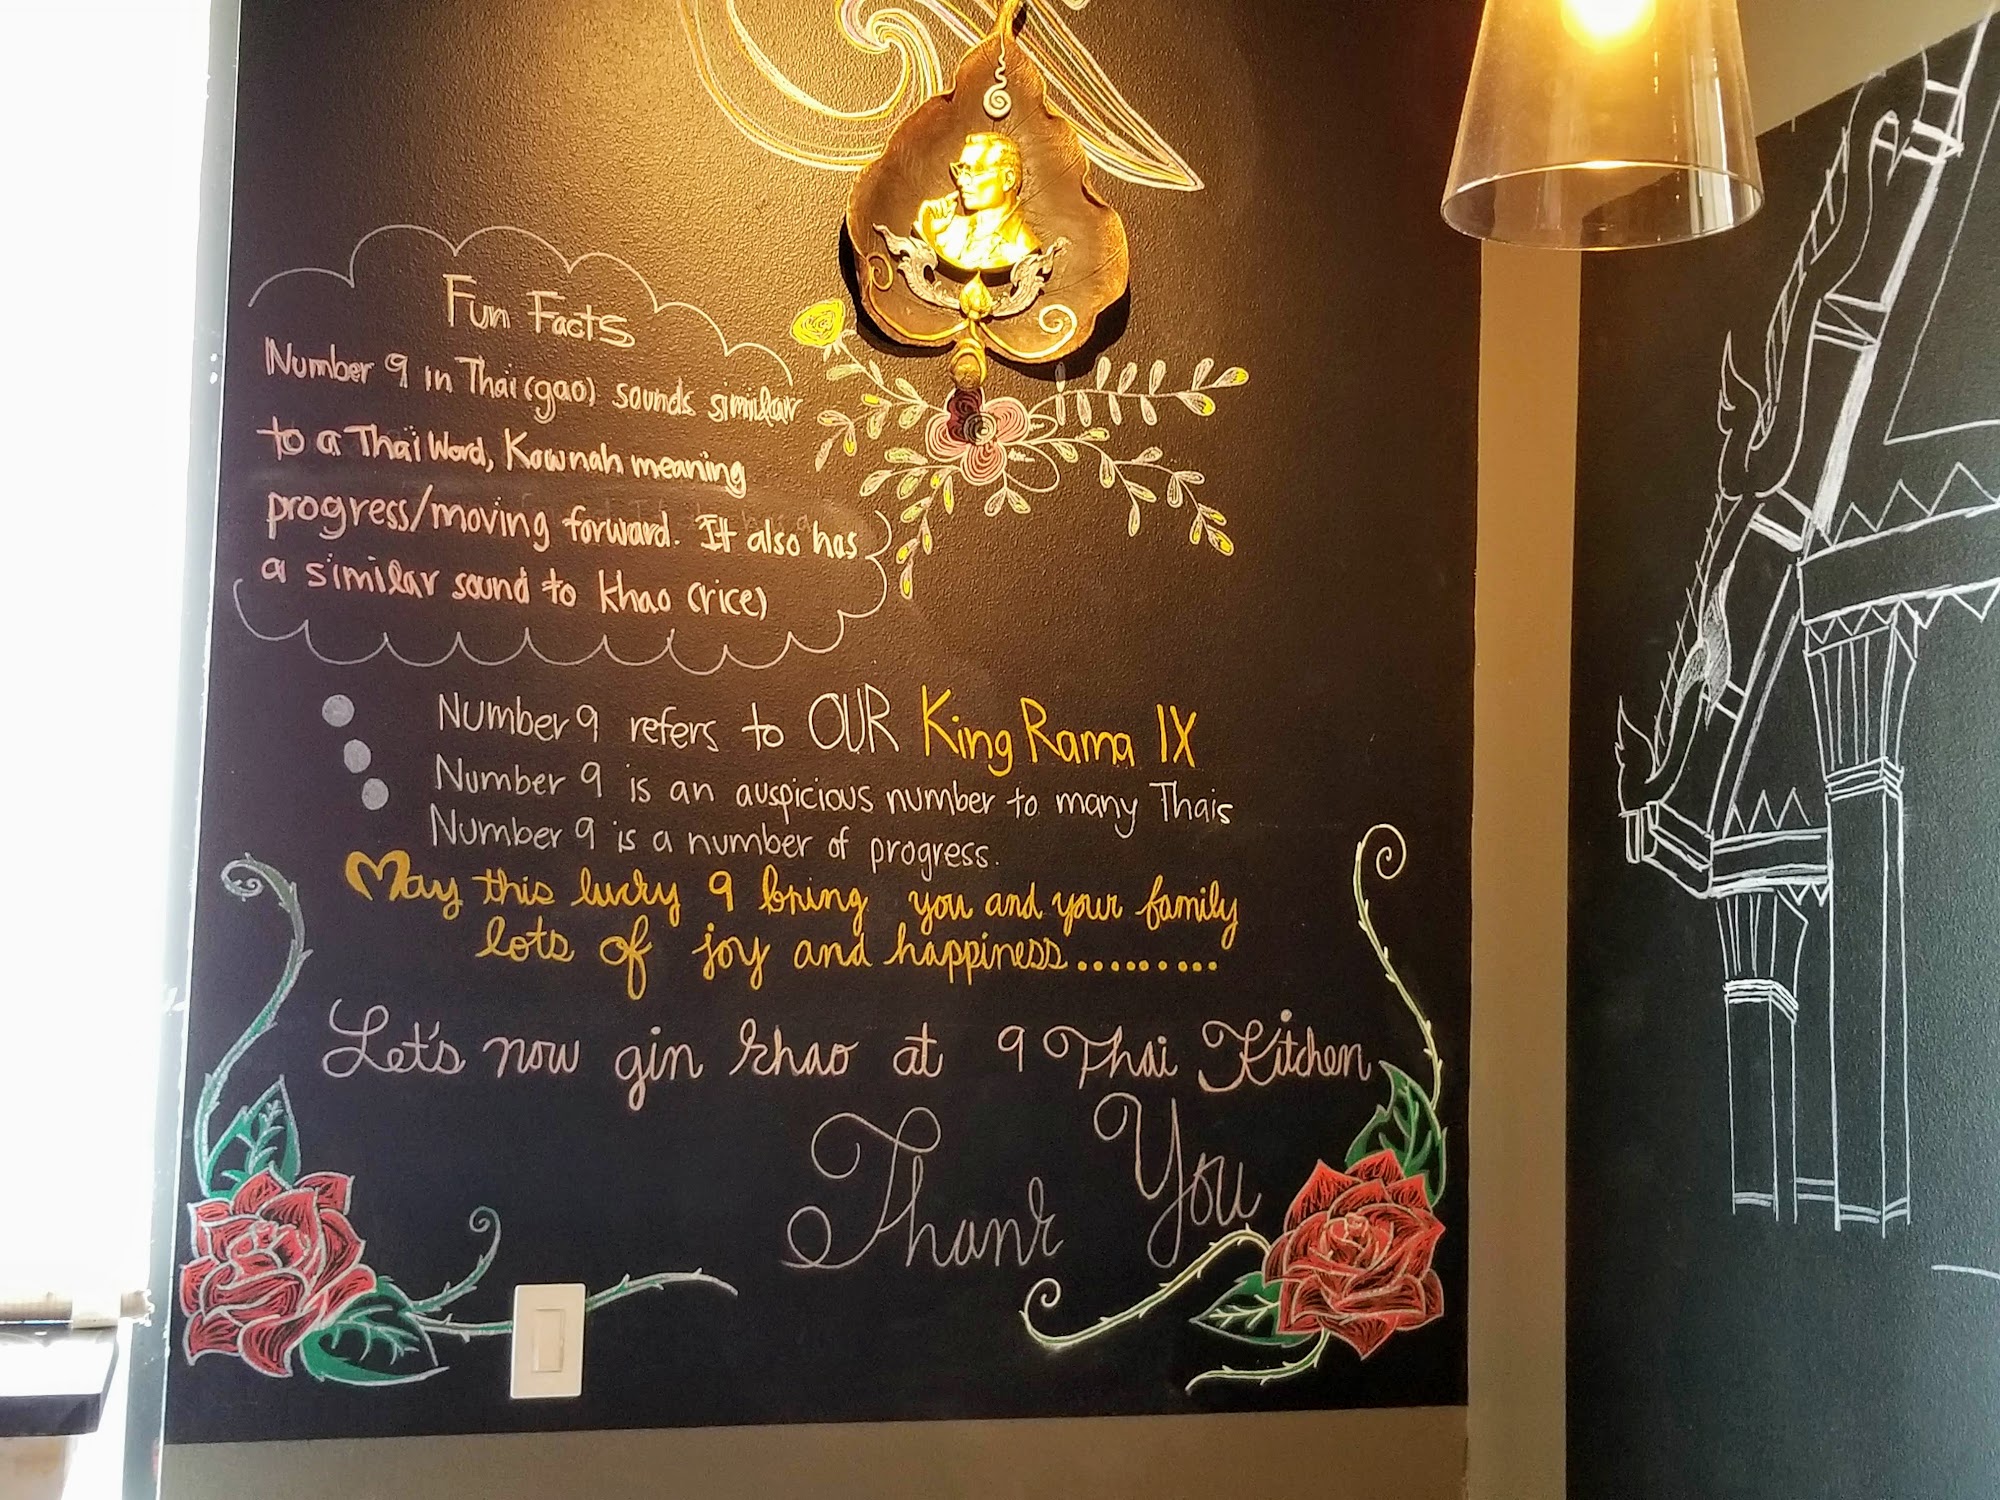 Fun Facts
Number 9 in Thai (gao) sounds similar
to a Thai Word, Kownah meaning
progress/moving forward. It also has
a similar sound to khao (rice)
Number 9 refers to OUR King Rama IX
Number 9 is an auspicious number to many Thais
Number 9 is a number of progress.
May this lucky 9 bring you and your family
lots of joy and happiness.........
Let's now gin khao at 9 Thai Kitchen
Thank You